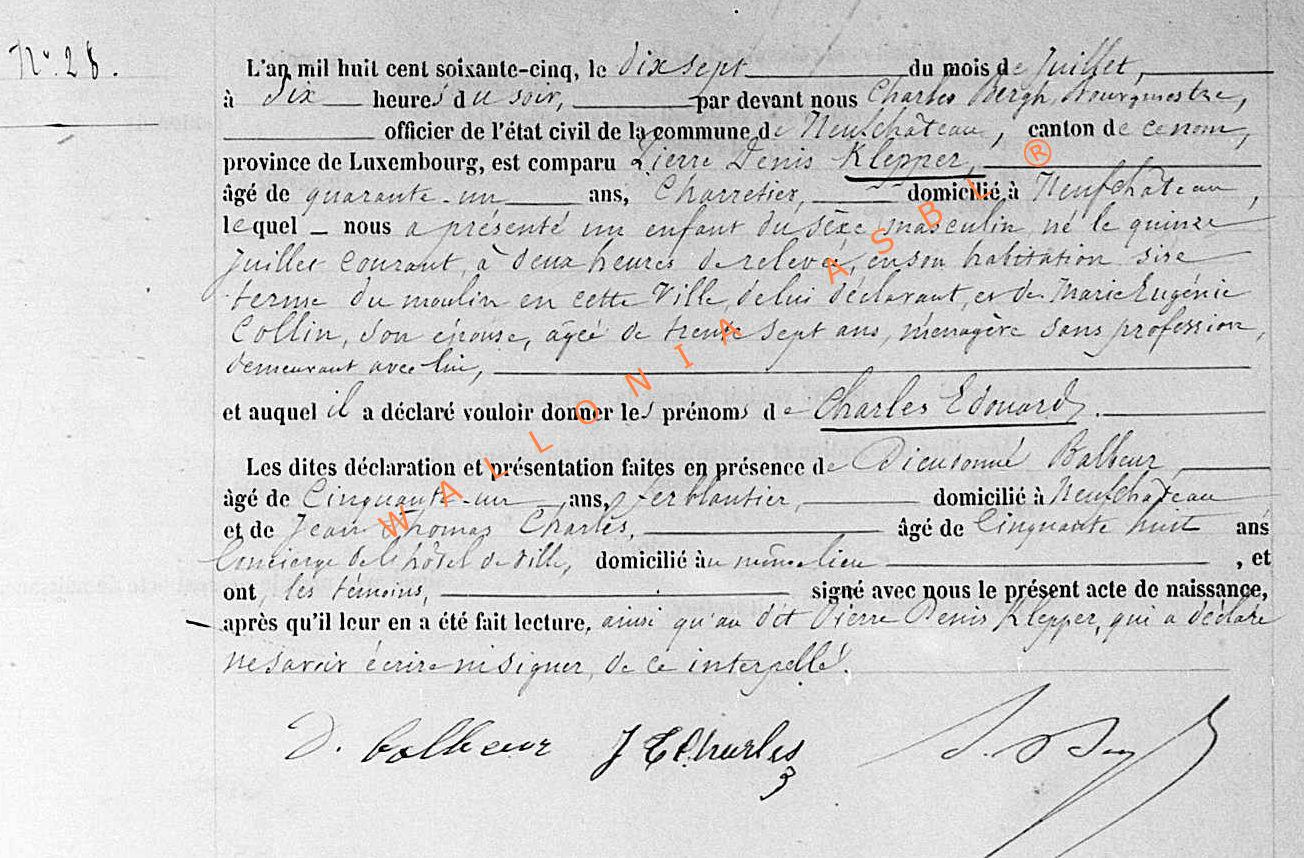 N°. 28.
L'an mil huit cent soixante-cinq, le dix sept du mois de Juillet,
à dix heures du soir, par devant nous Charles Bergh, Bourgmestre,
officier de l'état civil de la commune de Neufchâteau, canton de ce nom,
province de Luxembourg, est comparu Pierre Denis Klepper,
âgé de quarante-un ans, Charretier, domicilié à Neufchâteau,
lequel nous a présenté un enfant du sexe masculin né le quinze
Juillet courant, à deux heures de relevée, en son habitation sise
ferme du moulin en cette Ville, de lui déclarant, et de Marie Eugénie
Collin, son épouse, agée de trente sept ans, ménagère sans profession,
demeurant avec lui,
et auquel il a déclaré vouloir donner les prénoms de Charles Edouard.
Les dites déclaration et présentation faites en présence de Dieudonné Balbeur
âgé de Cinquante-un ans, ferblantier, domicilié à Neufchâteau
et de Jean Thomas Charles, âgé de Cinquante huit ans
Concierge de l'hôtel de Ville, domicilié au même lieu, et
ont, les témoins, signé avec nous le présent acte de naissance,
après qu'il leur en a été fait lecture, ainsi qu'au dit Pierre Denis Klepper, qui a déclaré
ne savoir écrire ni signer, de ce interpellé.
D. balbeur J T Charles
WALLONIA ASBL ®